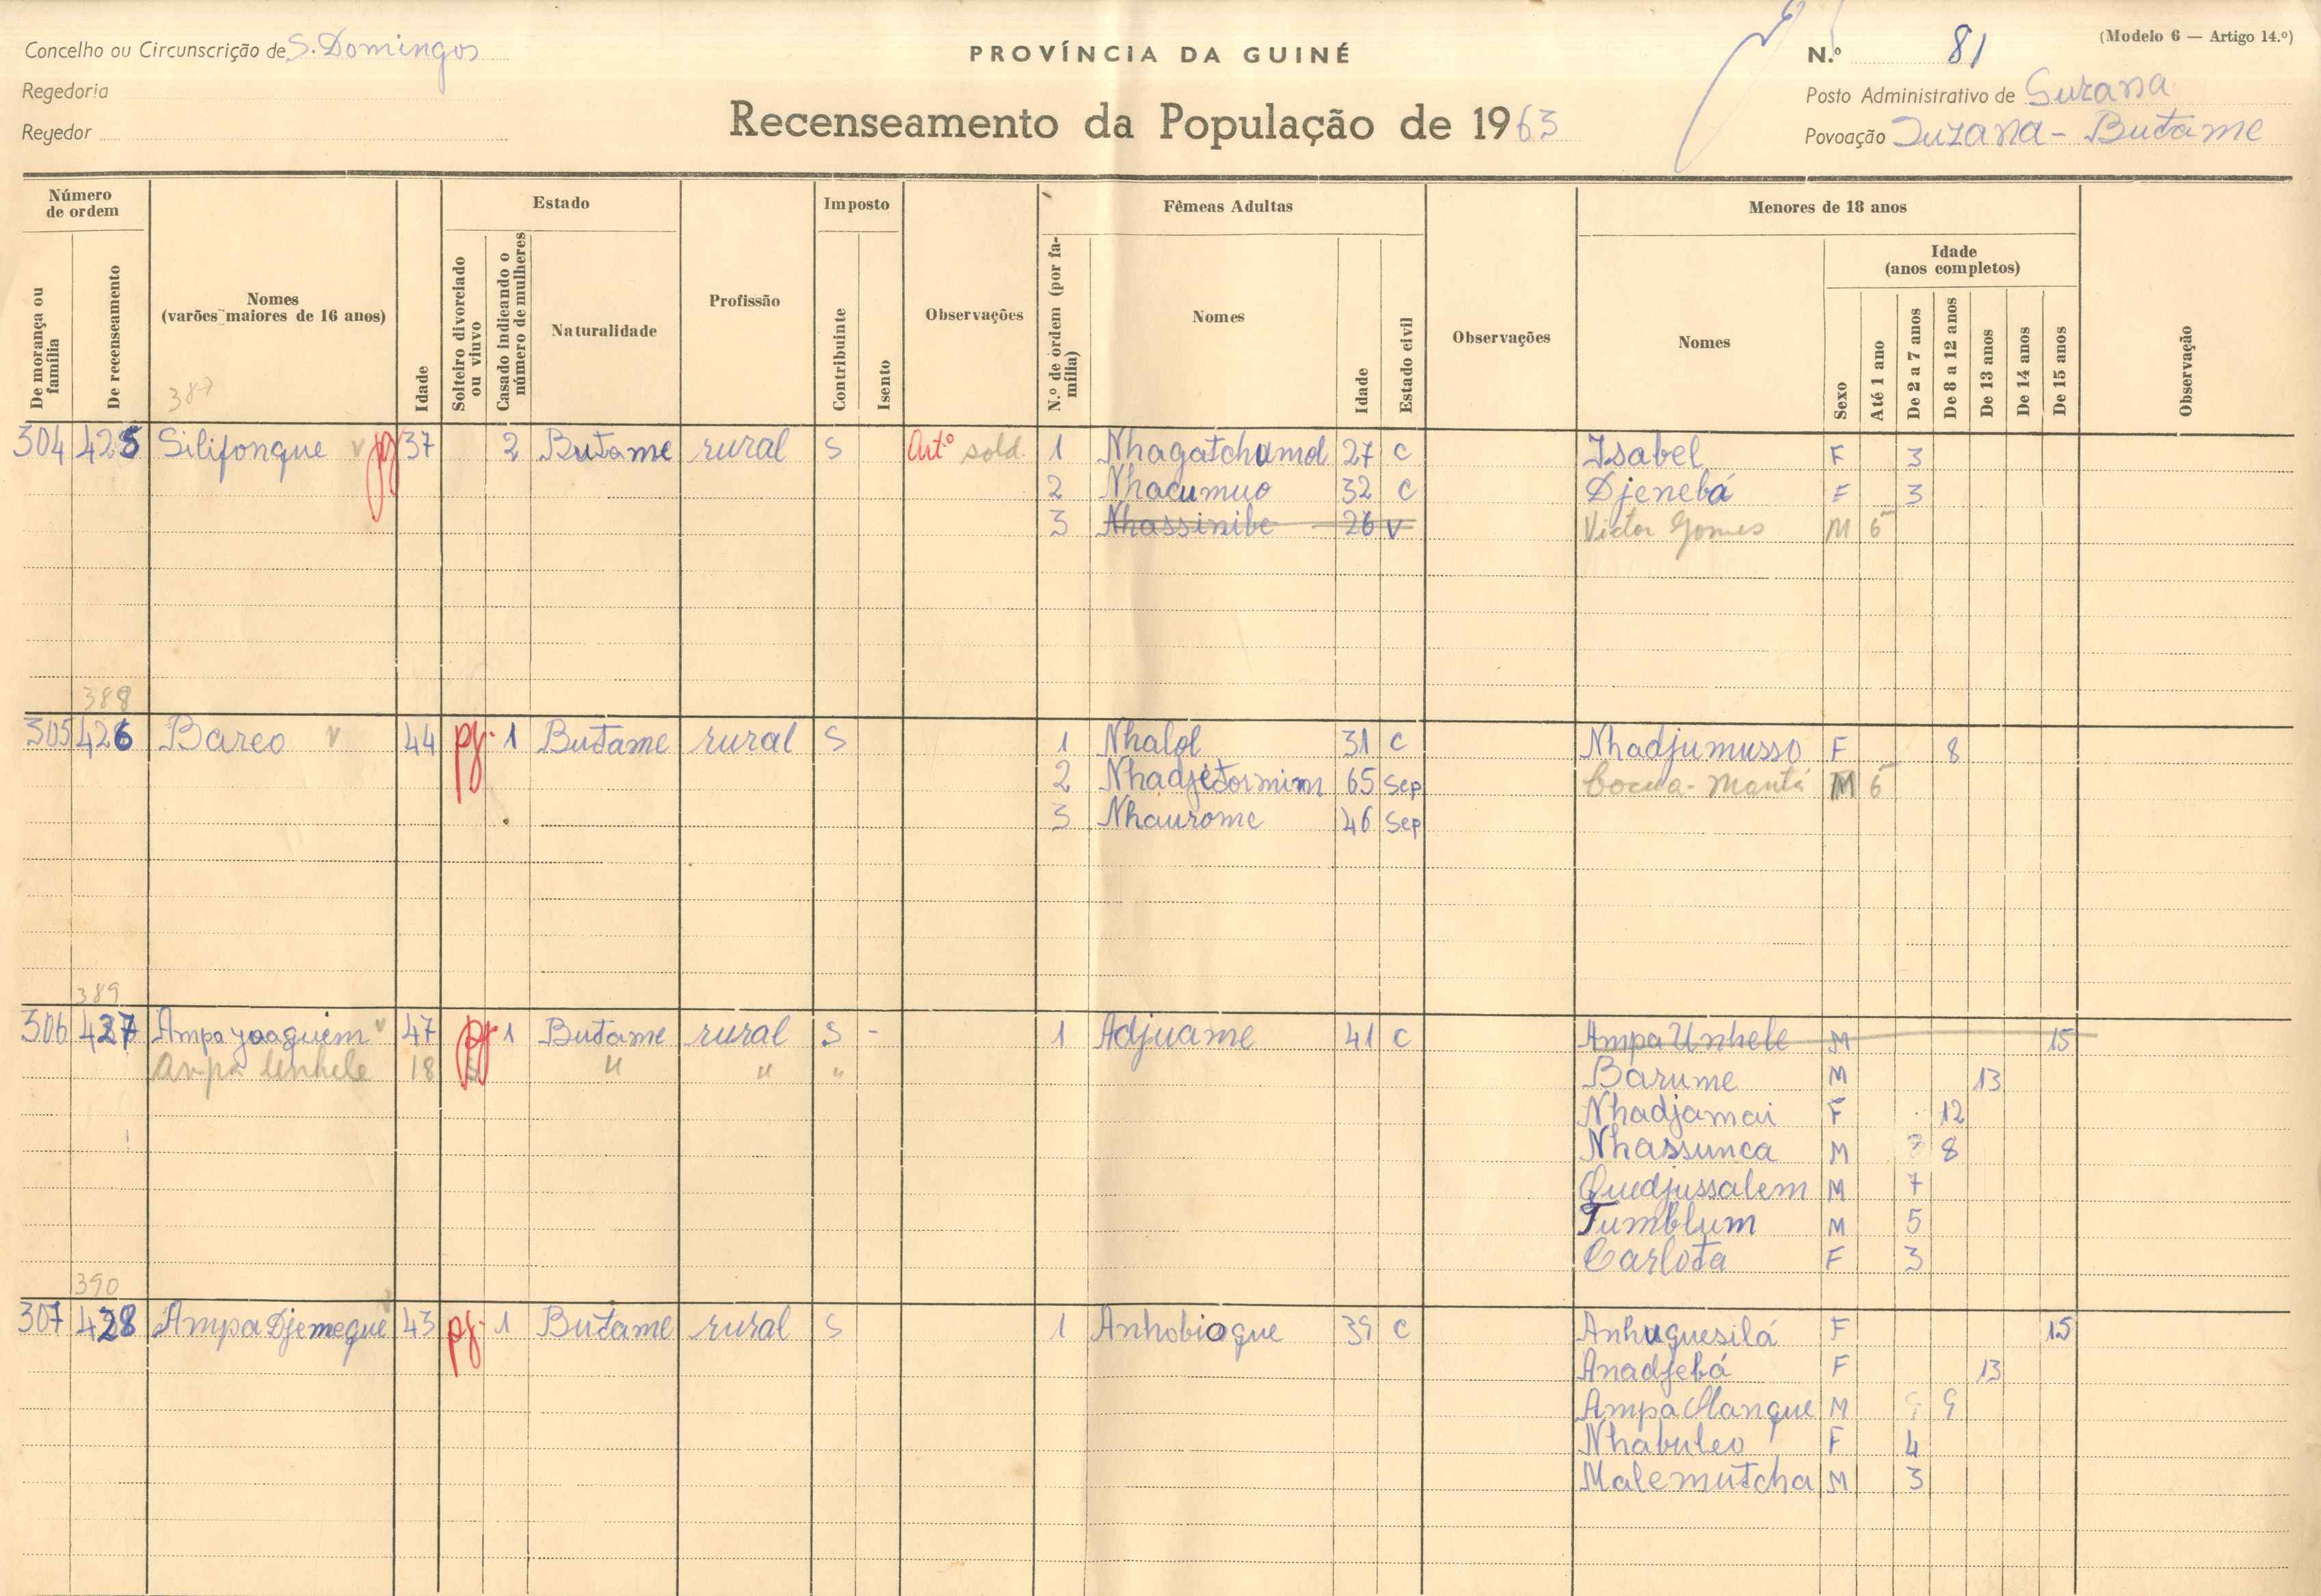 Concelho ou Circunscrição de S. Domingos
PROVÍNCIA DA GUINÉ
N.º 81
(Modelo 6 — Artigo 14.º)
Regedoria
Posto Administrativo de Suzana
Regedor
Recenseamento da População de 1963
Povoação Suzana - Butame
Número de ordem
De morança ou família
De recenseamento
Nomes (varões maiores de 16 anos)
Idade
Estado
Solteiro divorciado ou viuvo
Casado indicando o número de mulheres
Naturalidade
Profissão
Imposto
Contribuinte
Isento
Observações
Fêmeas Adultas
N.º de ordem (por família)
Nomes
Idade
Estado civil
Observações
Menores de 18 anos
Nomes
Sexo
Idade (anos completos)
Até 1 ano
De 2 a 7 anos
De 8 a 12 anos
De 13 anos
De 14 anos
De 15 anos
Observação
387
304 425 Silifonque v pg 37 2 Butame rural S Artº sold. 1 Nhagatchamol 27 C Isabel F 3
2 Nhacumuo 32 C Djenebá F 3
3 Nhassinibe 26 V Victor Gomes M 6
388
305 426 Bareo v 44 pg. 1 Butame rural S 1 Nhalol 31 C Nhadjumusso F 8
2 Nhadjétormim 65 Sep M 6
3 Nhaurome 46 Sep
389
306 427 Ampa yoaquem v 47 pg 1 Butame rural S - 1 Adjuame 41 C Ampa Unhele M 15
Ampa Unhele 18 S " " " Barume M 13
Nhadjamai F 12
Nhassunca M 7 8
Quedjussalem M 7
Tumblum M 5
Carlota F 3
390
307 428 Ampa Djemeque v 43 pg. 1 Butame rural S 1 Anhobioque 39 C Anhuguesilá F 15
Anadjebá F 13
Ampa Olanque M 9 9
Nhabuleo F 4
Malemutcha M 3